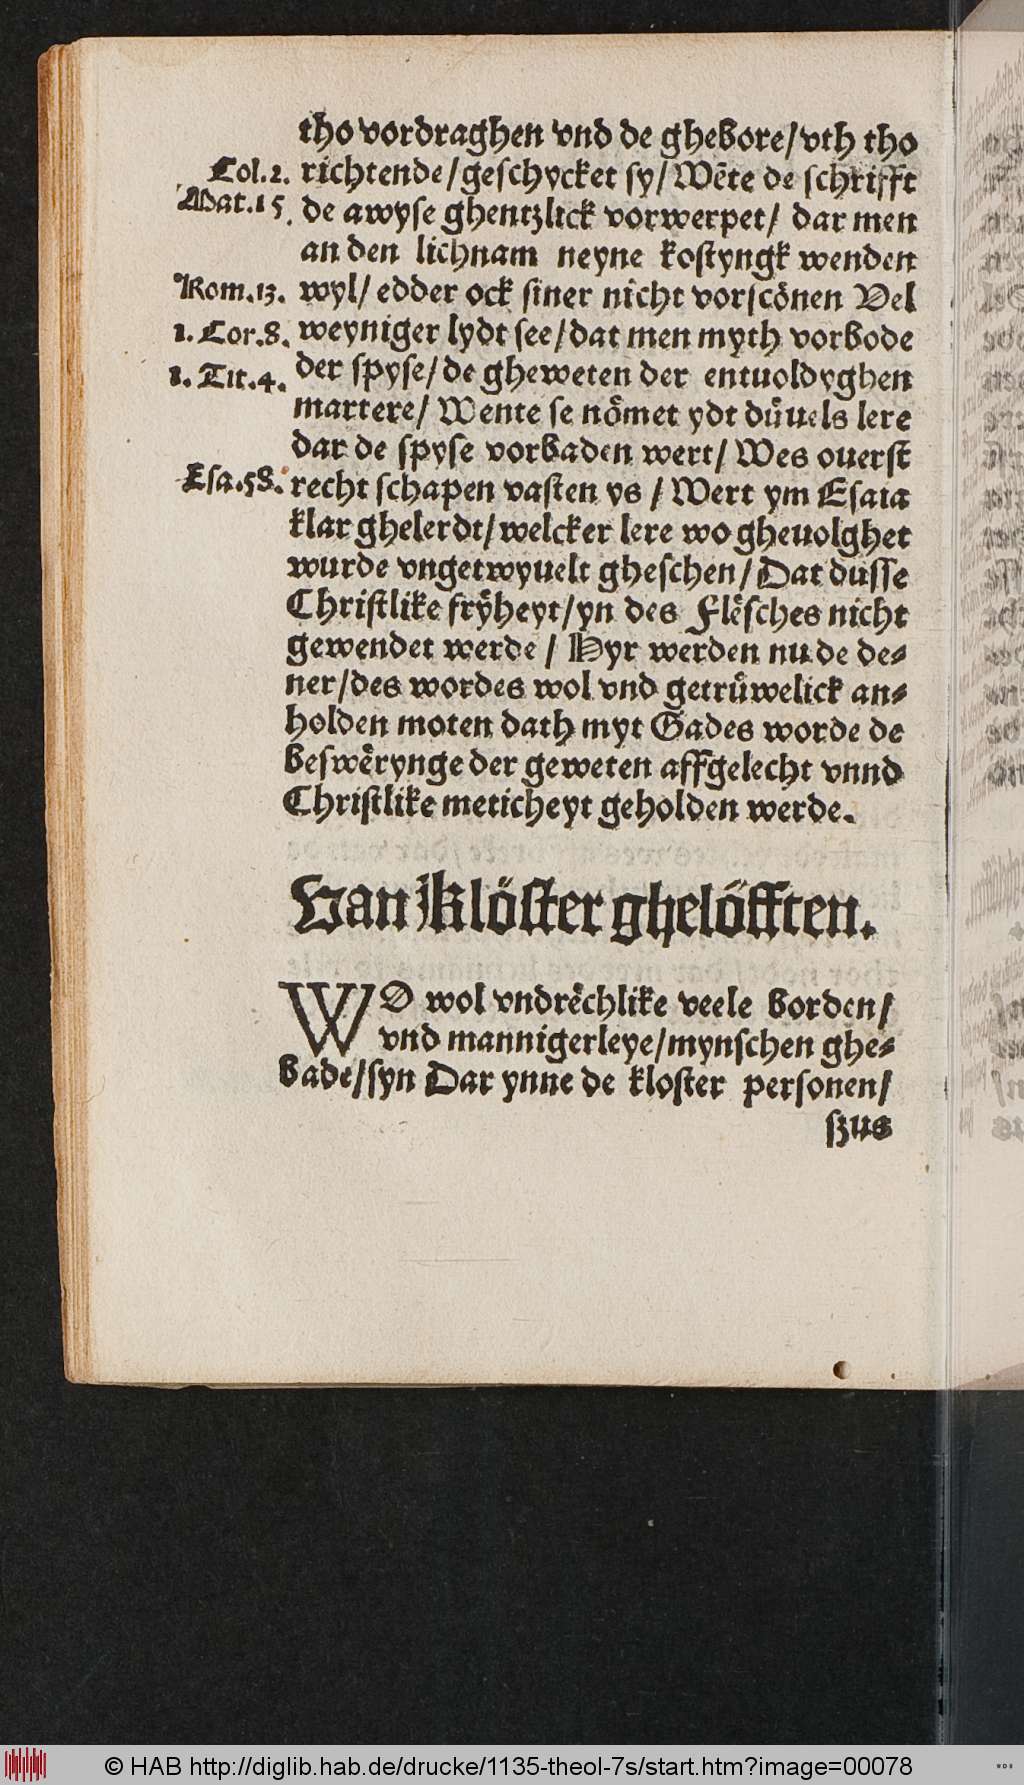 tho vordraghen vnd de ghebore/vth tho
Col.2. richtende/geschycket sy/Wēte de schrifft
Mat.15. de awyse ghentzlick vorwerpet/ dar men
an den lichnam neyne kostyngk wenden
Rom.13. wyl/ edder ock siner nicht vorscönen Vel
1. Cor.8. weyniger lydt see/dat men myth vorbode
1. Tit.4. der spyse/de gheweten der entuoldyghen
martere/ Wente se nömet ydt düuels lere
dar de spyse vorbaden wert/ Wes ouerst
Esa.58. recht schapen vasten ys / Wert ym Esaia
klar ghelerdt/welcker lere wo gheuolghet
wurde vngetwyuelt gheschen/Dat dusse
Christlike frÿheyt/yn des Flësches nicht
gewendet werde / Hyr werden nu de de-
ner/des wordes wol vnd getrüwelick an-
holden moten dath myt Gades worde de
beswërynge der geweten affgelecht vnnd
Christlike meticheyt geholden werde.
Van Klöster ghelöfften.
WO wol vndrëchlike veele borden/
vnd mannigerleye/mynschen ghe-
bade/syn Dar ynne de kloster personen/
szus
© HAB http://diglib.hab.de/drucke/1135-theol-7s/start.htm?image=00078